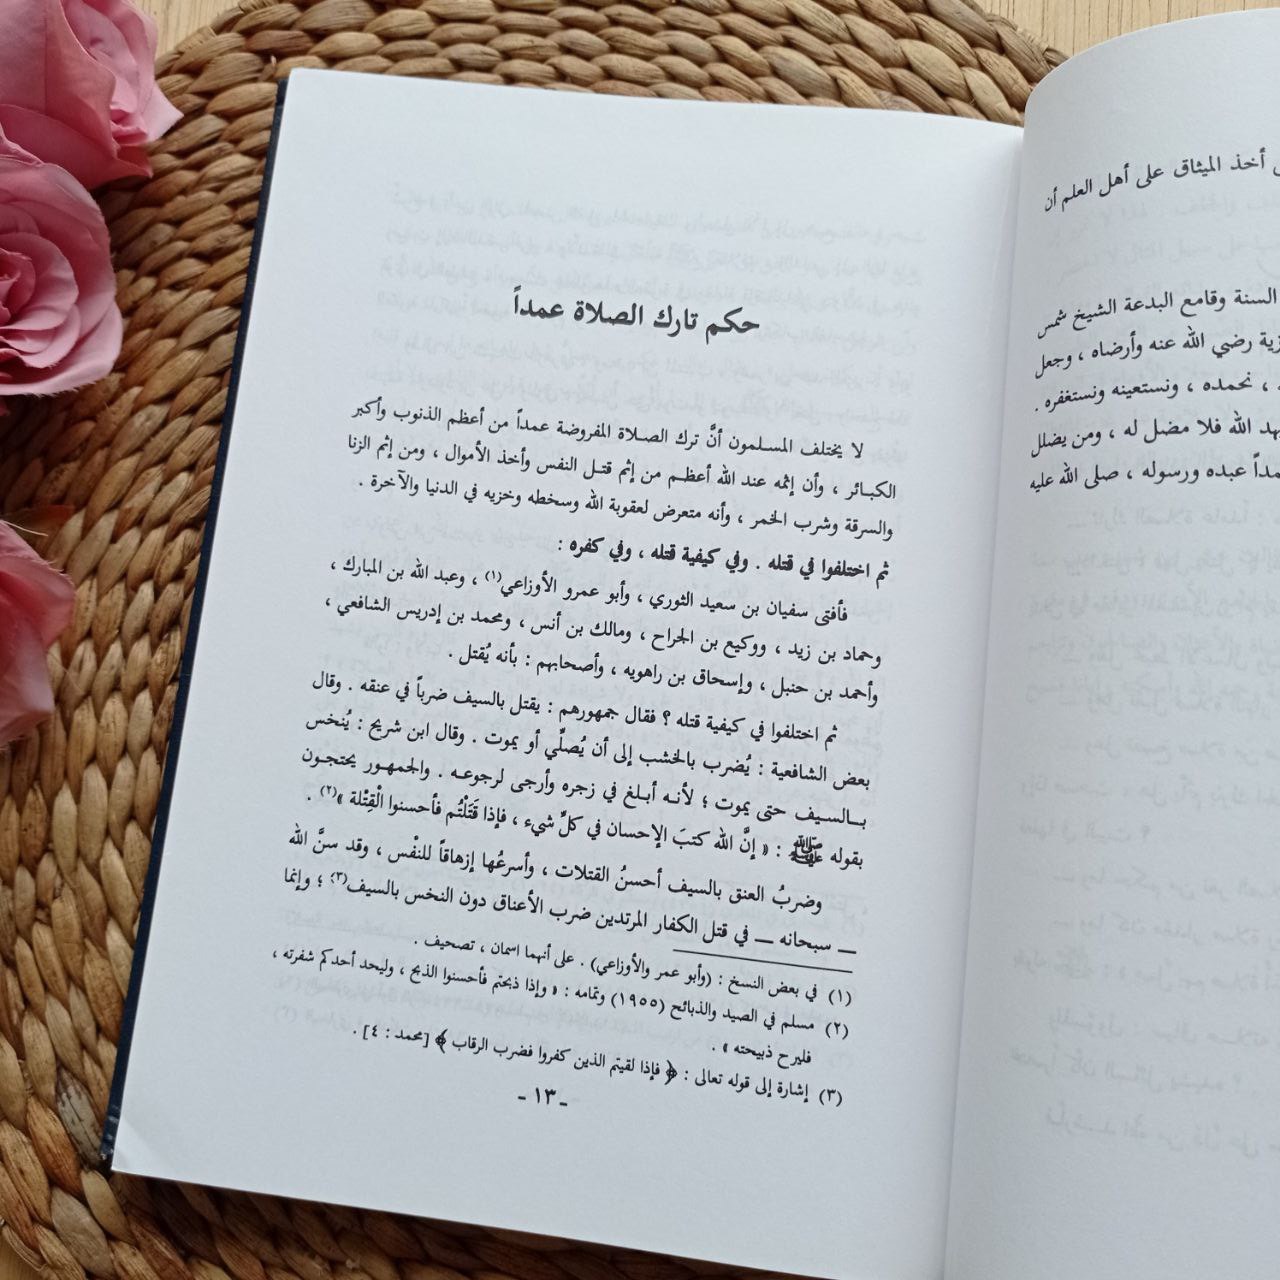 أخذ الميثاق على أهل العلم أن
السنة وقامع البدعة الشيخ شمس
رضي الله عنه وأرضاه ، وجعل
، نحمده ، ونستعينه ونستغفره .
الله فلا مضل له ، ومن يضلل
عبده ورسوله ، صلى الله عليه
حكم تارك الصلاة عمداً
لا يختلف المسلمون أنَّ ترك الصلاة المفروضة عمداً من أعظم الذنوب وأكبر
الكبائر ، وأن إثمه عند الله أعظم من إثم قتل النفس وأخذ الأموال ، ومن إثم الزنا
والسرقة وشرب الخمر ، وأنه متعرض لعقوبة الله وسخطه وخزيه في الدنيا والآخرة .
ثم اختلفوا في قتله . وفي كيفية قتله ، وفي كفره :
فأفتى سفيان بن سعيد الثوري ، وأبو عمرو الأوزاعي(١) ، وعبد الله بن المبارك ،
وحماد بن زيد ، ووكيع بن الجراح ، ومالك بن أنس ، ومحمد بن إدريس الشافعي ،
وأحمد بن حنبل ، وإسحاق بن راهويه ، وأصحابهم : بأنه يُقتل .
ثم اختلفوا في كيفية قتله ؟ فقال جمهورهم : يقتل بالسيف ضرباً في عنقه . وقال
بعض الشافعية : يُضرب بالخشب إلى أن يُصلِّي أو يموت . وقال ابن شريح : يُنخس
بالسيف حتى يموت ؛ لأنه أبلغ في زجره وأرجى لرجوعه . والجمهور يحتجون
بقوله ﷺ : « إنَّ الله كتبَ الإحسان في كلِّ شيء ، فإذا قَتَلْتُم فأحسنوا الْقِتْلة »(٢) .
وضربُ العنق بالسيف أحسنُ القتلات ، وأسرعُها إزهاقاً للنفْس ، وقد سنَّ الله
— سبحانه — في قتل الكفار المرتدين ضرب الأعناق دون النخس بالسيف(٣) ؛ وإنما
(١) في بعض النسخ : (وأبو عمر والأوزاعي) . على أنهما اسمان ، تصحيف .
(٢) مسلم في الصيد والذبائح (١٩٥٥) وتمامه : « وإذا ذبحتم فأحسنوا الذبح ، وليحد أحدكم شفرته ،
فليرح ذبيحته » .
(٣) إشارة إلى قوله تعالى : ﴿ فإذا لقيتم الذين كفروا فضرب الرقاب ﴾ [محمد : ٤] .
- ١٣ -